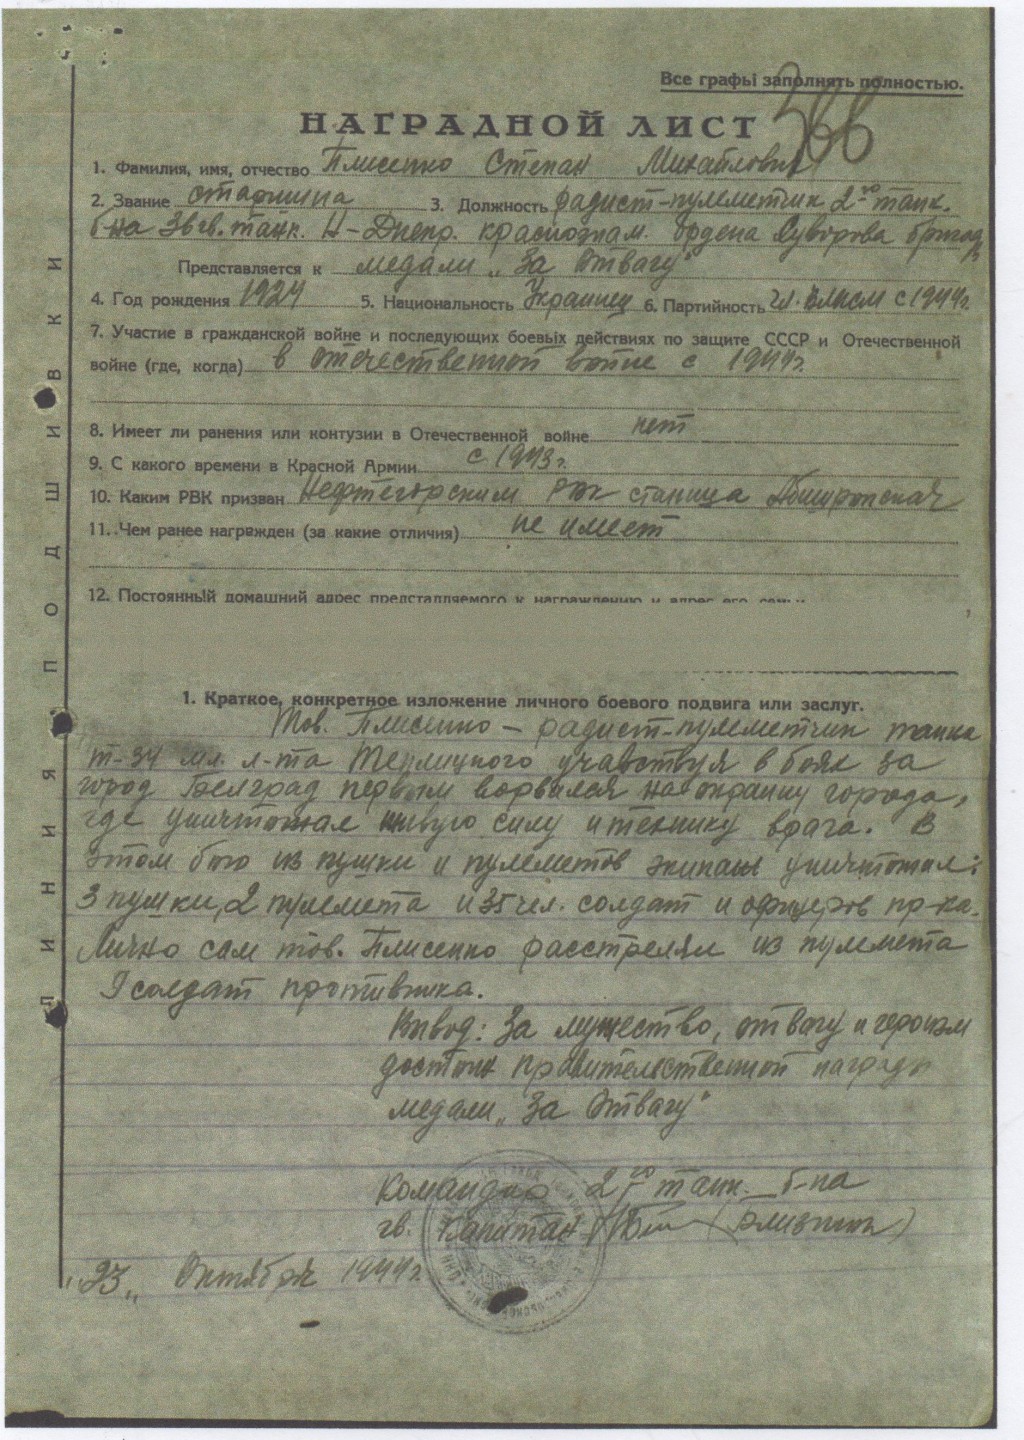 Все графы заполнять полностью.
366
НАГРАДНОЙ ЛИСТ
1. Фамилия, имя, отчество Плисенко Степан Михайлович
2. Звание старшина 3. Должность радист-пулеметчик 2го танк.
б-на 36 гв. танк. Н-Днепр. краснознам. ордена Суворова бригад
Представляется к медали „За Отвагу"
4. Год рождения 1924 5. Национальность Украинец 6. Партийность чл. ВЛКСМ с 1944г.
7. Участие в гражданской войне и последующих боевых действиях по защите СССР и Отечественной
войне (где, когда) в отечественной войне с 1944г.
8. Имеет ли ранения или контузии в Отечественной войне нет
9. С какого времени в Красной Армии с 1943г.
10. Каким РВК призван Нефтегорским РВК станица Апшеронская
11. Чем ранее награжден (за какие отличия) не имеет
12. Постоянный домашний адрес представляемого к награждению и адрес его семьи
1. Краткое, конкретное изложение личного боевого подвига или заслуг.
Тов. Плисенко – радист-пулеметчик танка
Т-34 мл. л-та Теплицкого учавствуя в боях за
город Белград первым ворвался на окраину города,
где уничтожал живую силу и технику врага. В
этом бою из пушки и пулеметов экипаж уничтожил:
3 пушки, 2 пулемета и 35 чел. солдат и офицеров пр-ка.
Лично сам тов. Плисенко расстрелял из пулемета
9 солдат противника.
Вывод: За мужество, отвагу и героизм
достоин правительственной награды
медали „За Отвагу"
Командир 2го танк. б-на
гв. Капитан
„23„ Октября 1944г.
ЛИНИЯ ПОДШИВКИ